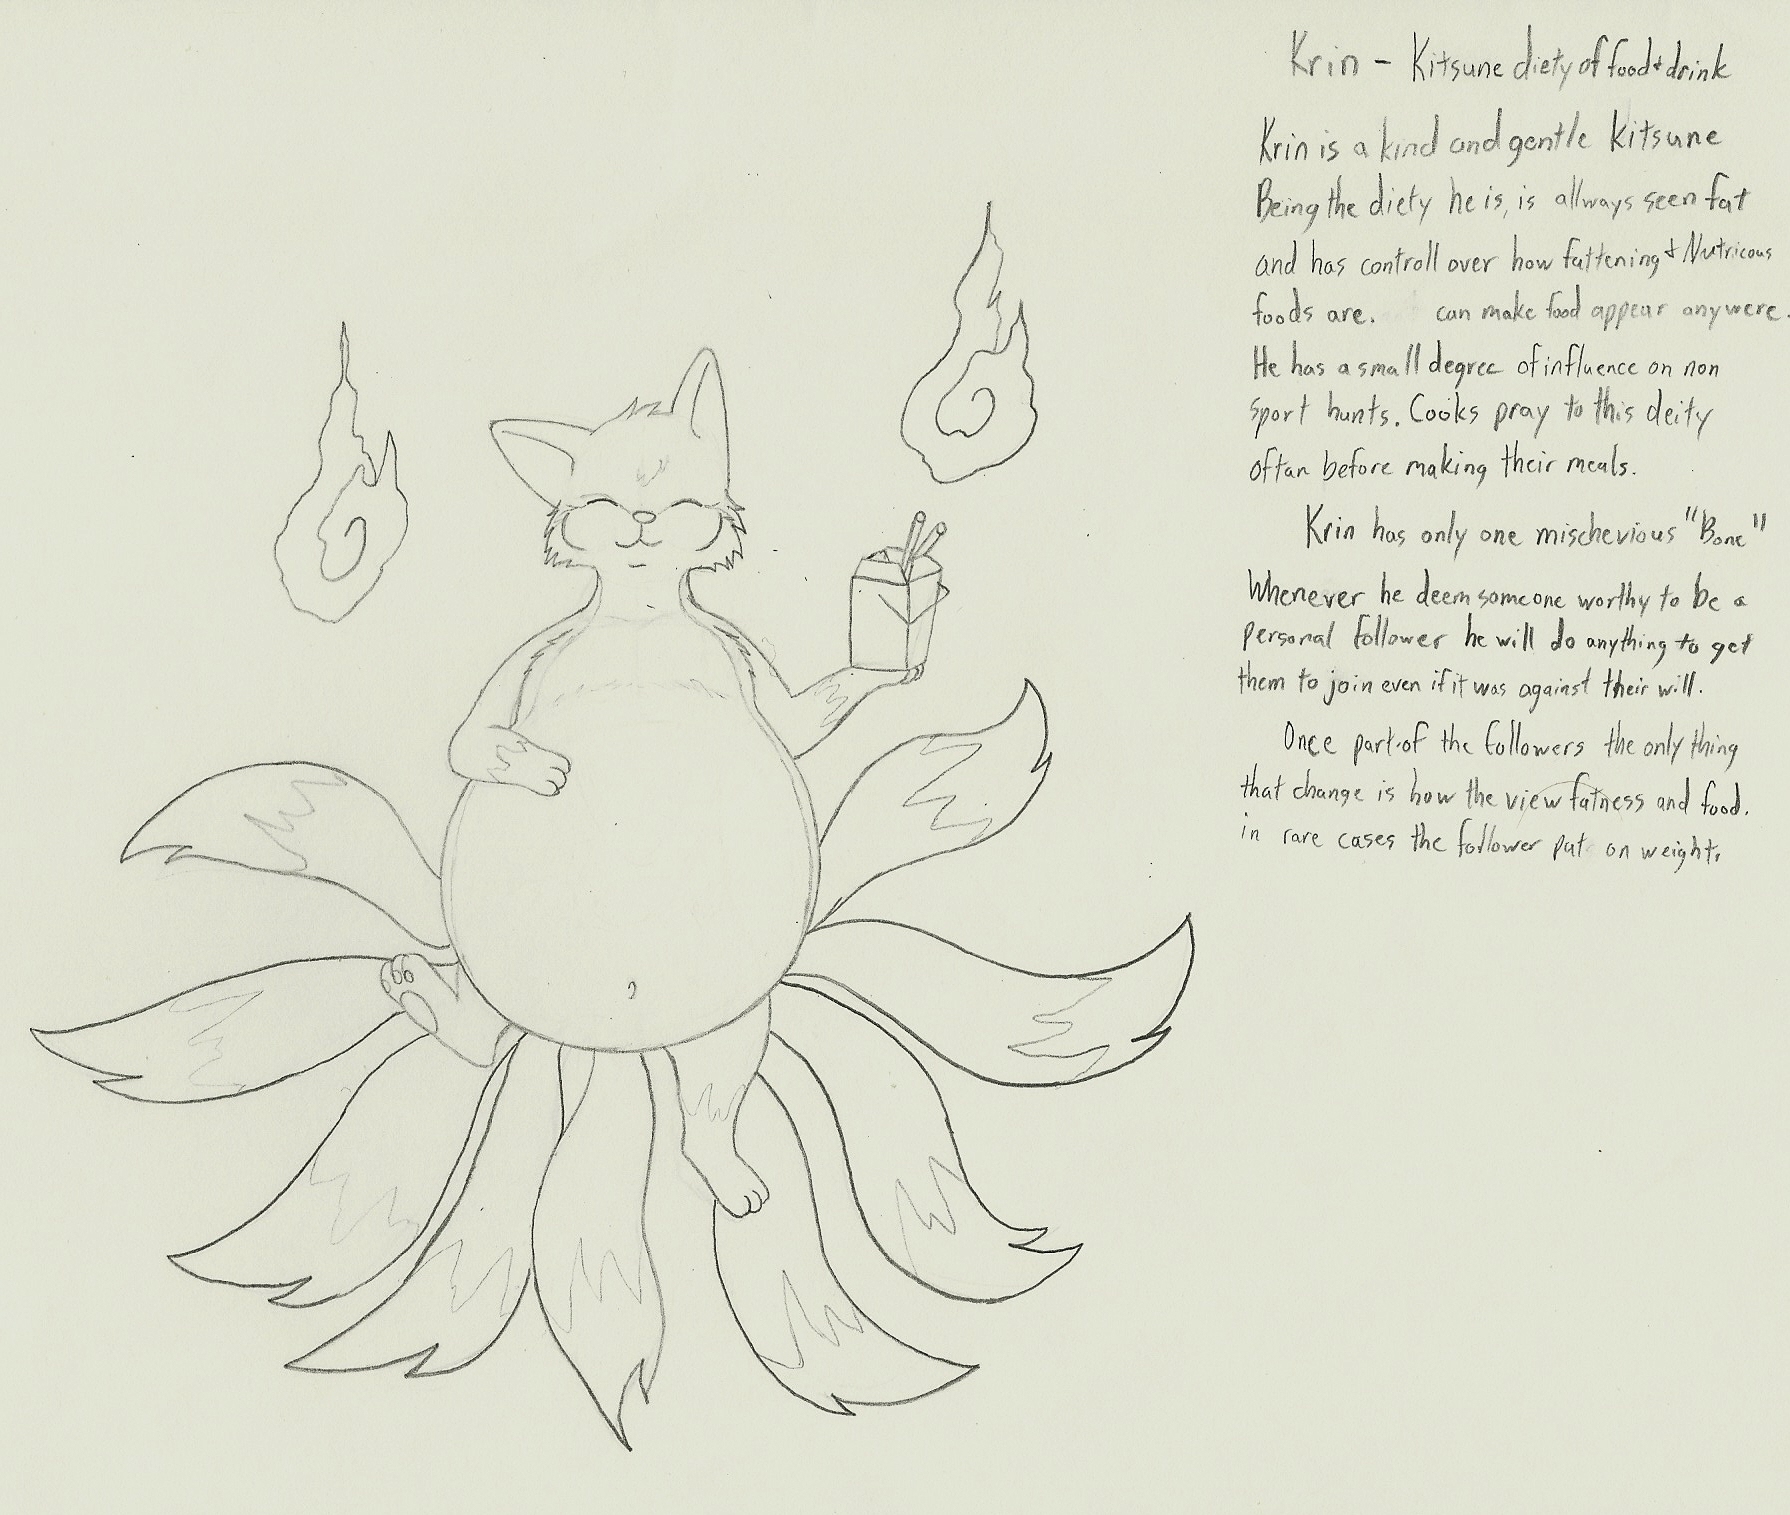 Krin - Kitsune diety of food + drink
Krin is a kind and gentle Kitsune
Being the diety he is, is allways seen fat
and has controll over how fattening + Nutricous
foods are. can make food appear anywere.
He has a small degree of influence on non
sport hunts. Cooks pray to this deity
oftan before making their meals.
Krin has only one mischevious "Bone"
Whenever he deem someone worthy to be a
personal follower he will do anything to get
them to join even if it was against their will.
Once part of the followers the only thing
that change is how the view fatness and food.
in rare cases the follower put on weight.